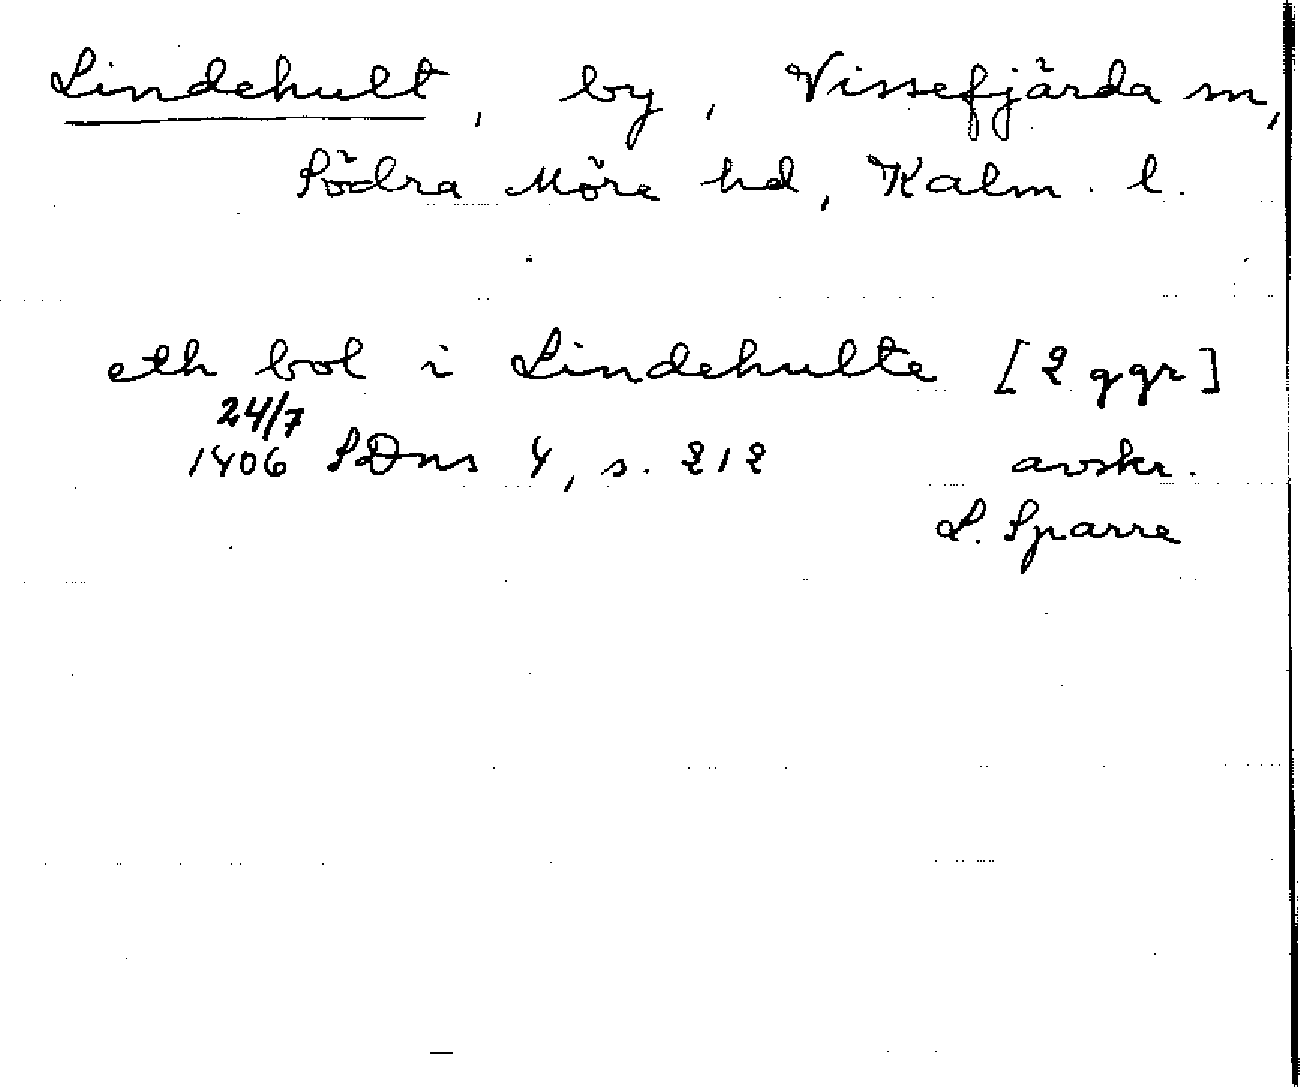 Lindehult, by, Vissefjärda sn,
Södra Möre hd, Kalm. l.
eth bol i Lindehulte [2 ggr]
24/7
1406 SDns 4, s. 212 avskr.
L. Sparre